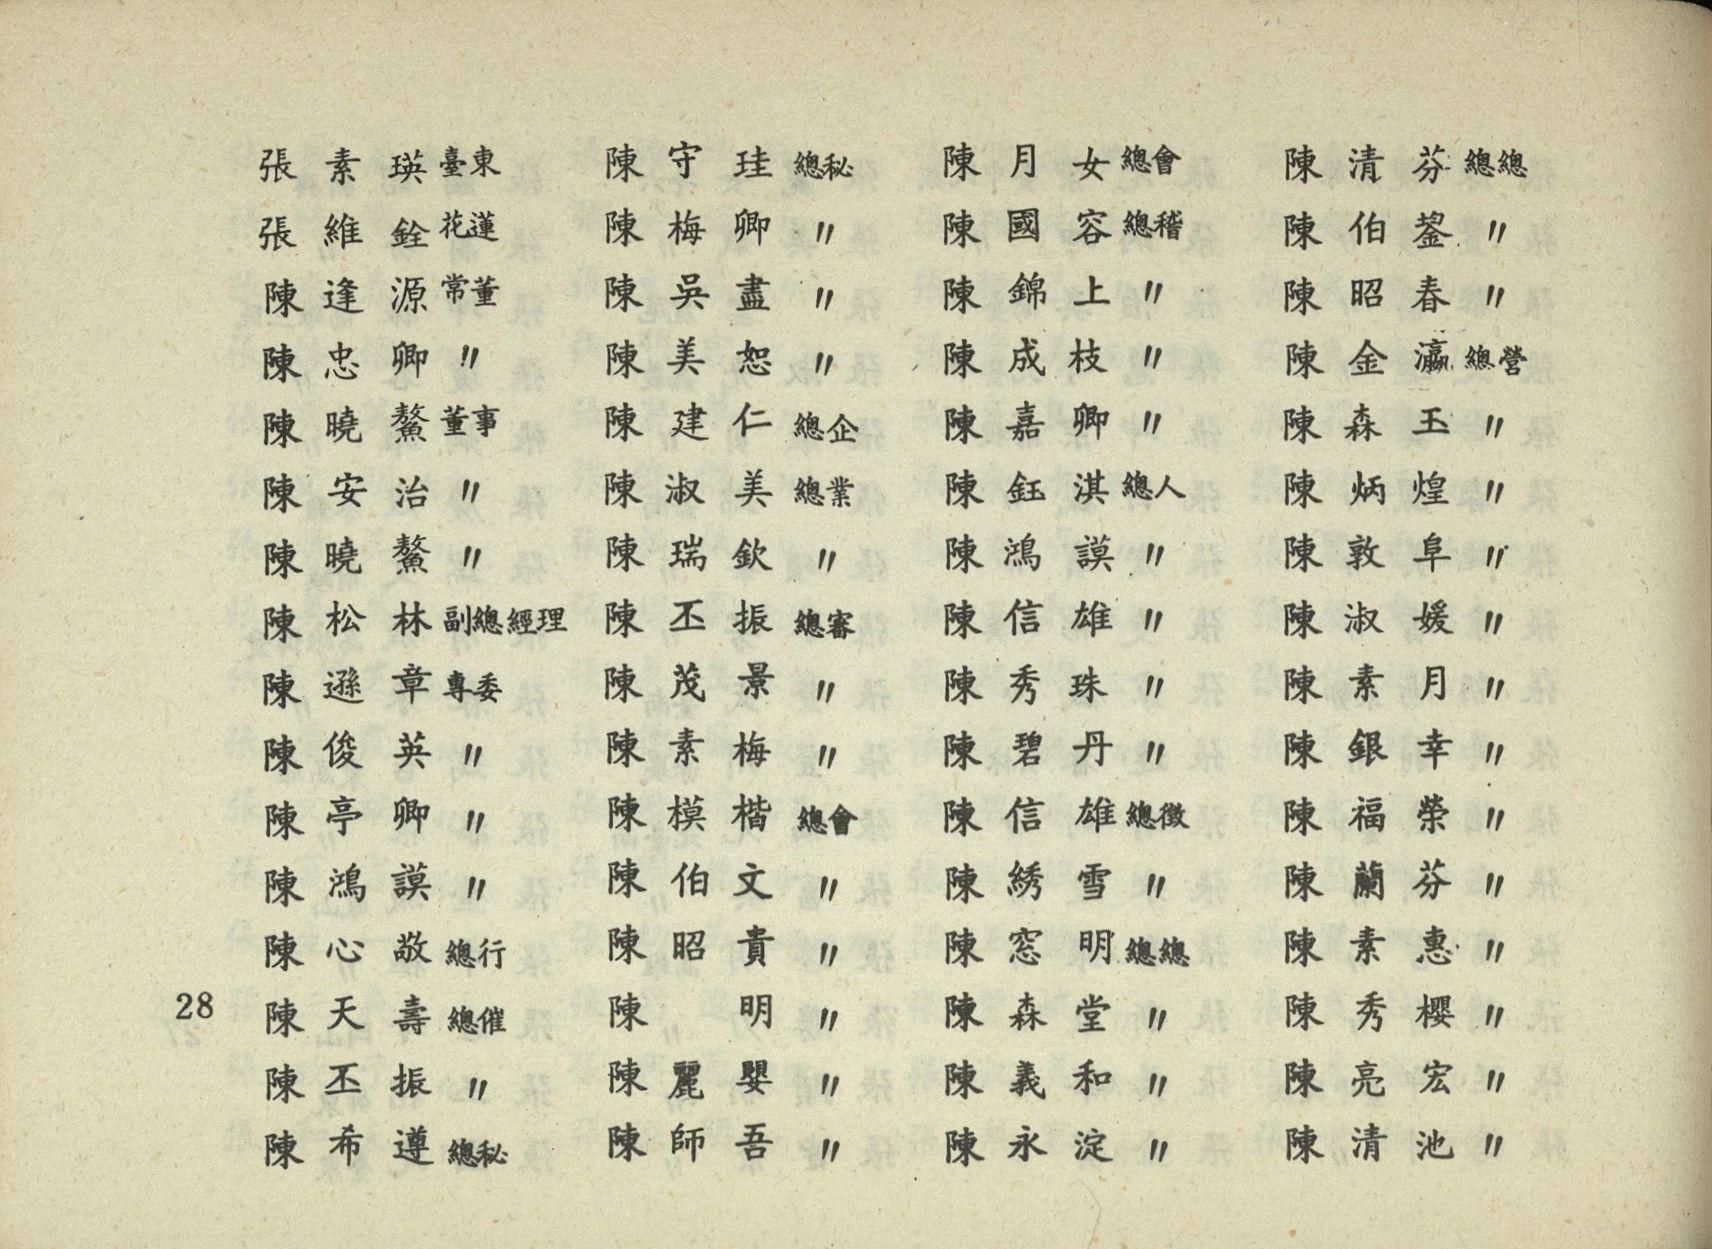 張素瑛 臺東
張維銓 花蓮
陳逢源 常董
陳忠卿 〃
陳曉鰲 董事
陳安治 〃
陳曉鰲 〃
陳松林 副總經理
陳遜章 專委
陳俊英 〃
陳亭卿 〃
陳鴻謨 〃
陳心敬 總行
陳天壽 總催
陳丕振 〃
陳希遵 總秘
陳守珪 總秘
陳梅卿 〃
陳吳盡 〃
陳美恕 〃
陳建仁 總企
陳淑美 總業
陳瑞欽 〃
陳丕振 總審
陳茂景 〃
陳素梅 〃
陳模楷 總會
陳伯文 〃
陳昭貴 〃
陳明 〃
陳麗嬰 〃
陳師吾 〃
陳月女 總會
陳國容 總稽
陳錦上 〃
陳成枝 〃
陳嘉卿 〃
陳鈺淇 總人
陳鴻謨 〃
陳信雄 〃
陳秀珠 〃
陳碧丹 〃
陳信雄 總徵
陳綉雪 〃
陳窓明 總總
陳森堂 〃
陳義和 〃
陳永淀 〃
陳清芬 總總
陳伯鋆 〃
陳昭春 〃
陳金瀛 總營
陳森玉 〃
陳炳煌 〃
陳敦阜 〃
陳淑媛 〃
陳素月 〃
陳銀幸 〃
陳福榮 〃
陳蘭芬 〃
陳素惠 〃
陳秀櫻 〃
陳亮宏 〃
陳清池 〃
28